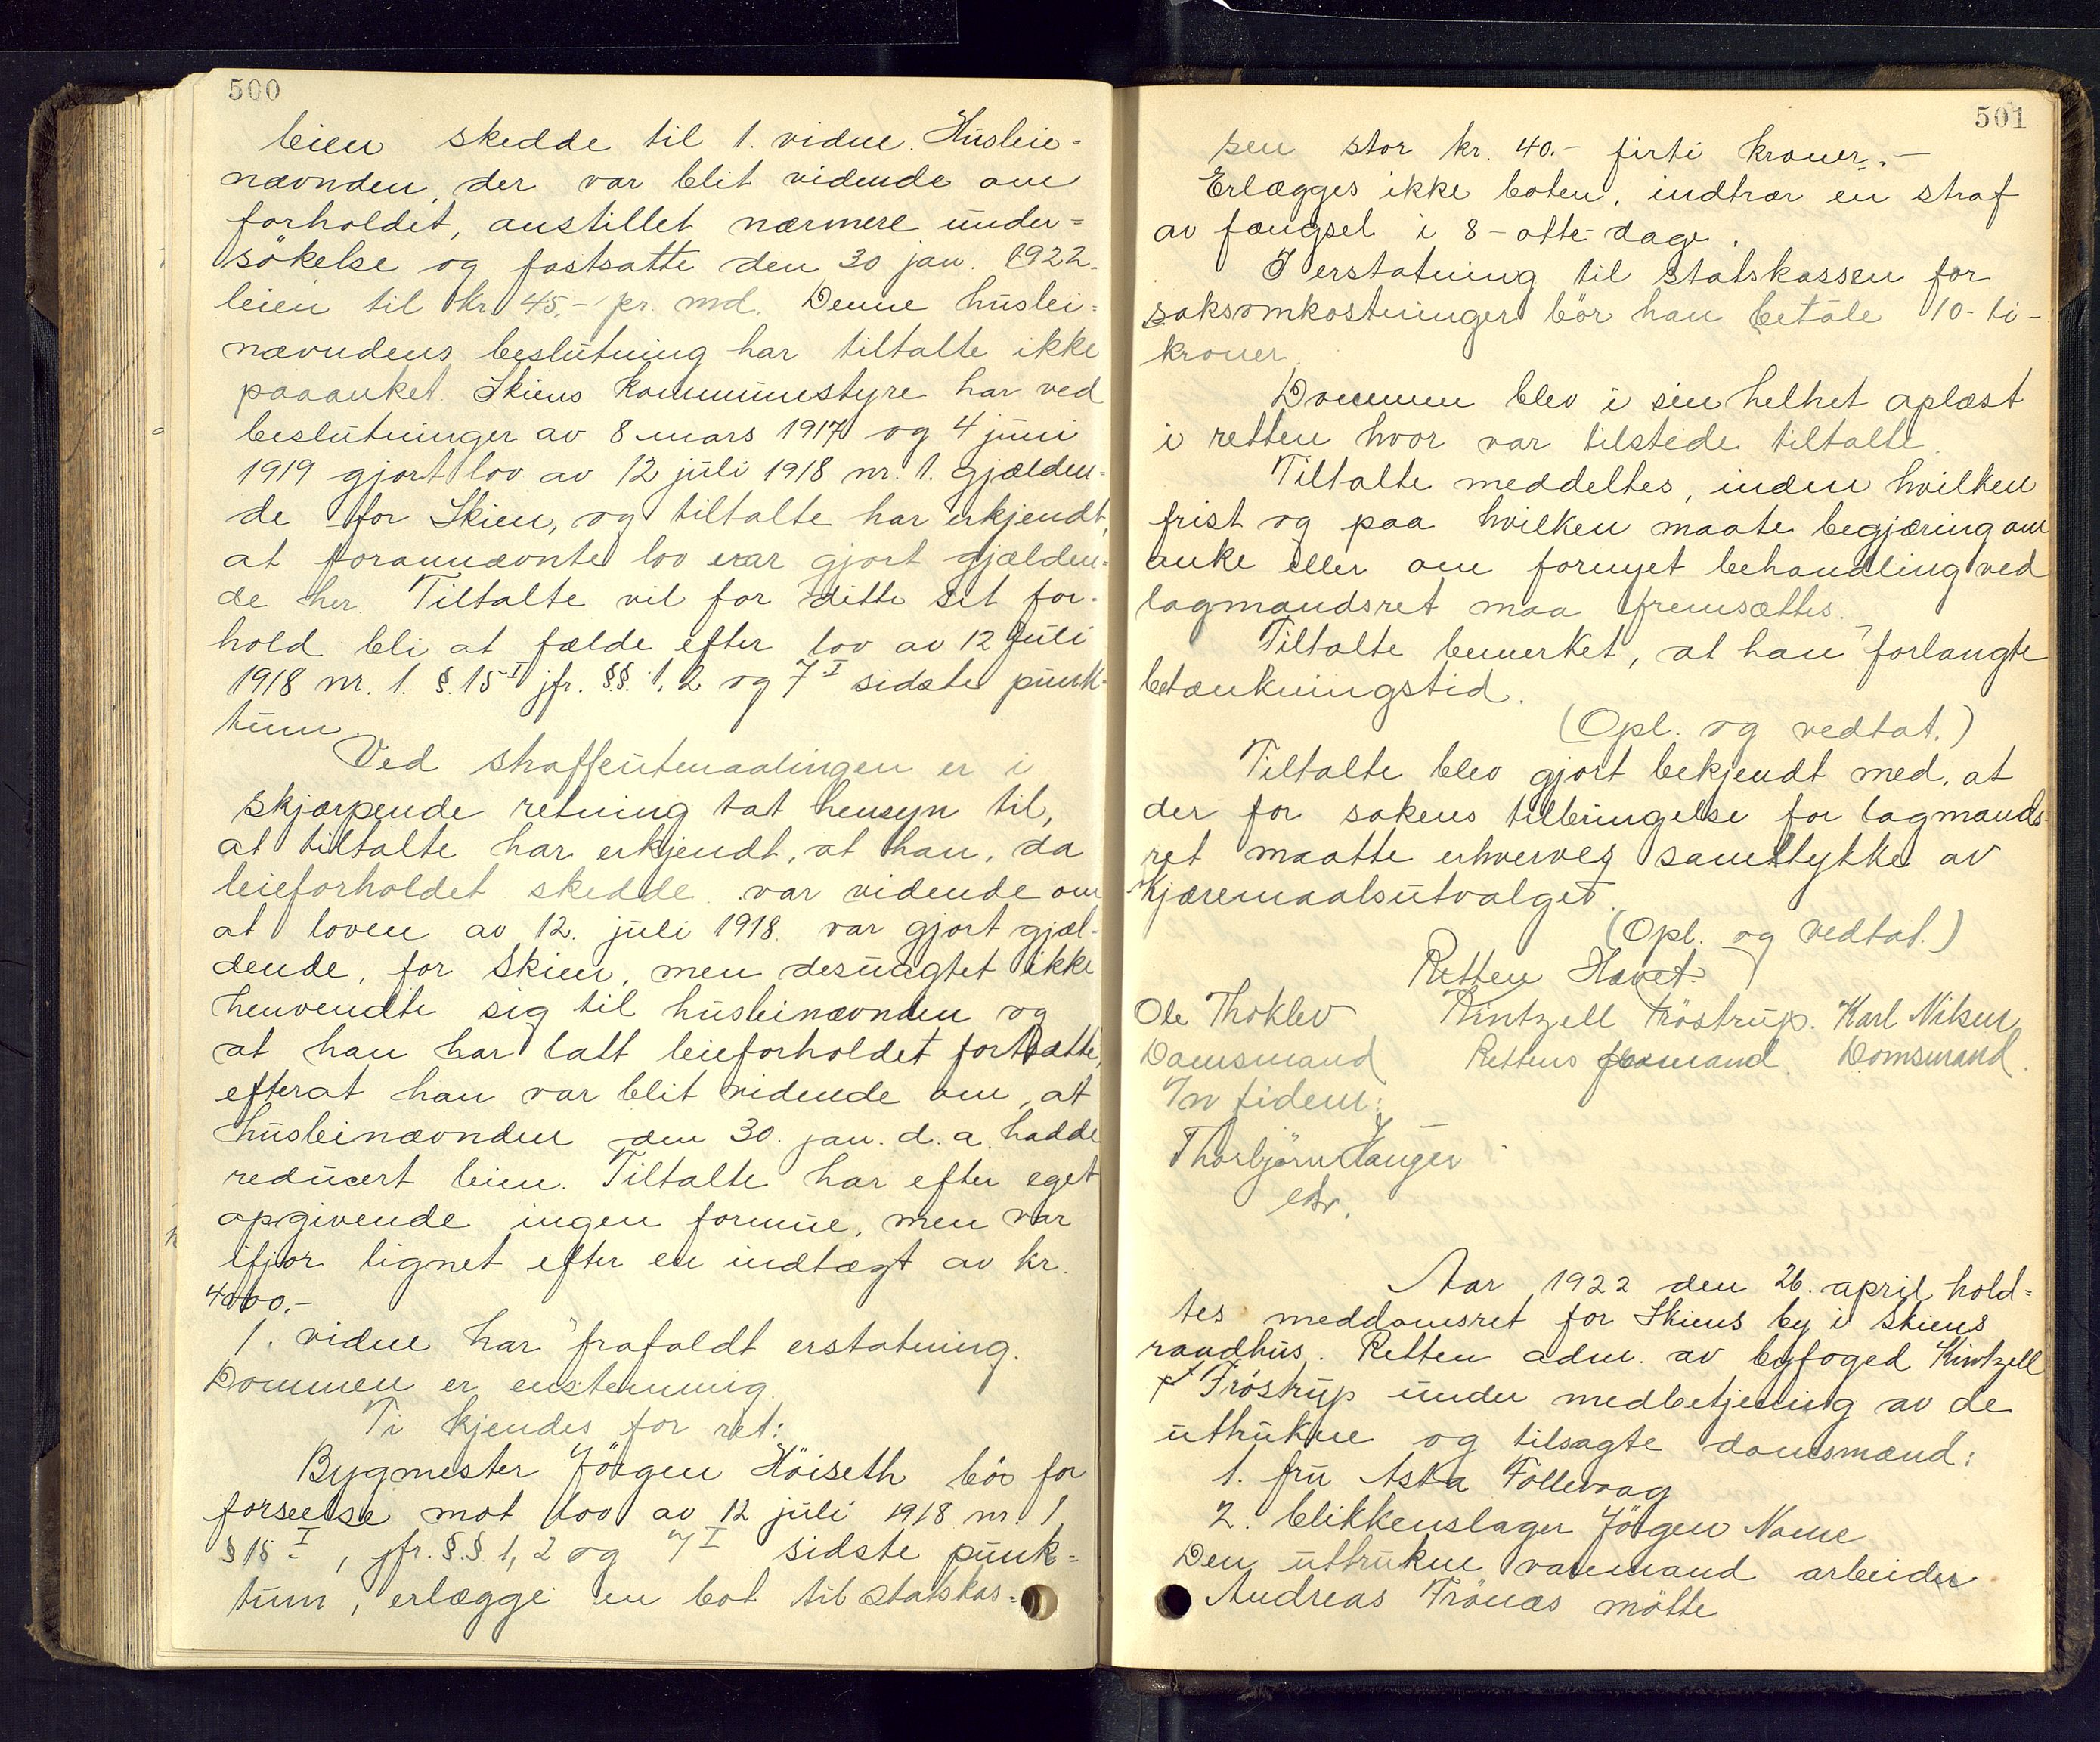 500
leien skedde til 1. vidne. Husleie-
nævnden, der var blit vidende om
forholdet, anstillet nærmere under-
søkelse og fastsatte den 30 jan. 1922.
leien til kr. 45.- pr. md. Denne huslei-
nævndens beslutning har tiltalte ikke
paaanket. Skiens kommunestyre har ved
beslutninger av 8 mars 1917 og 4 juni
1919 gjort lov av 12 juli 1918 nr. 1. gjælden-
de for Skien, og tiltalte har erkjendt,
at forannævnte lov var gjort gjælden-
de her. Tiltalte vil for dette sit for-
hold bli at fælde efter lov av 12 juli
1918 nr. 1. §. 15 I jfr. §§. 1, 2 og 7 I sidste punk-
tum.
Ved straffeutmaalingen er i
skjærpende retning tat hensyn til,
at tiltalte har erkjendt, at han, da
leieforholdet skedde var vidende om
at loven av 12. juli 1918. var gjort gjæl-
dende, for Skien, men desuagtet ikke
henvendte sig til husleinævnden og
at han har latt leieforholdet fortsætte,
efterat han var blit vidende om, at
husleinævnden den 30. jan. d. a. hadde
reducert leien. Tiltalte har efter eget
opgivende ingen formue, men var
ifjor lignet efter en indtægt av kr.
4000.-
1. vidne har frafaldt erstatning.
Dommen er enstemmig.
Ti kjendes for ret:
Bygmester Jörgen Höiseth bör for
forseelse mot lov av 12 juli 1918 nr. 1
§ 15 I, jfr. §.§. 1, 2 og 7 I sidste punk-
tum, erlægge en bot til statskas-
501
sen stor kr. 40.- firti kroner.-
Erlægges ikke boten, indtrær en straf
av fængsel i 8 - otte - dage.
I erstatning til statskassen for
saksomkostninger bör han betale 10 - ti -
kroner.
Dommen blev i sin helhet oplæst
i retten hvor var tilstede tiltalte.
Tiltalte meddeltes, inden hvilken
frist og paa hvilken maate begjæring om
anke eller om fornyet behandling ved
lagmandsret maa fremsættes.
Tiltalte bemerket, at han forlangte
betænkningstid.
(Opl. og vedtat.)
Tiltalte blev gjort bekjendt med, at
der for sakens tilbringelse for lagmands-
ret maatte erhverves samtykke av
Kjæremaalsutvalget.
(Opl. og vedtat.)
Retten Hævet.
Ole Thoklev Kintzell Fröstrup. Karl Nilsen
Domsmand Rettens formand. Domsmand.
In fidem:
Thorbjörn Hauger
etr.
Aar 1922 den 26. april hold-
tes meddomsret for Skiens by i Skiens
raadhus. Retten adm. av byfoged Kintzell
Fröstrup under medbetjening av de
uttrukne og tilsagte domsmænd:
1. fru Aska Follevaag
2. blikkenslager Jörgen Nome
Den uttrukne varemand arbeider
Andreas Frönæs mötte